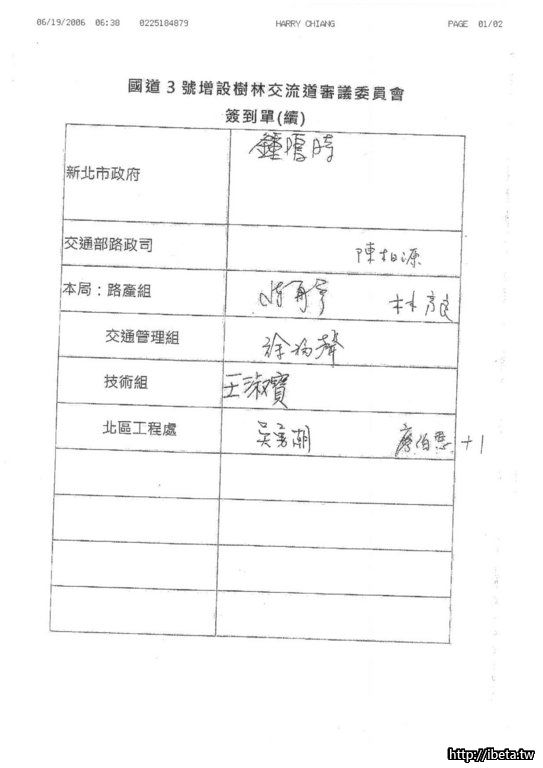 06/19/2006 06:38 0225184879 HARRY CHIANG PAGE 01/02
國道3號增設樹林交流道審議委員會
簽到單(續)
新北市政府 鍾鳴時
交通部路政司 陳柏源
本局：路產組 林
交通管理組 徐福聲
技術組 王淑寶
北區工程處 吳 廖伯 +1
http://ibeta.tw